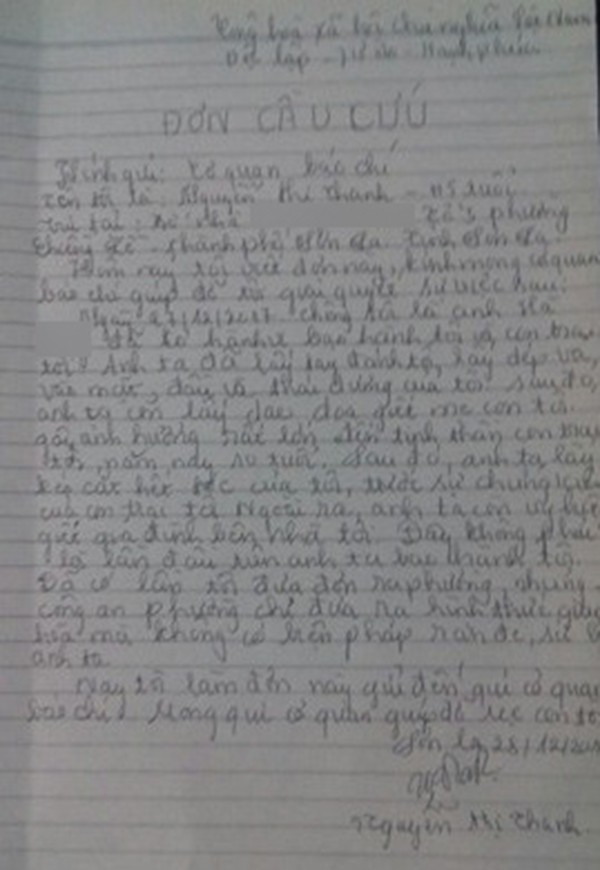 Cộng hoà xã hội chủ nghĩa Việt Nam
Độc lập - Tự do - Hạnh phúc
ĐƠN CẦU CỨU
Kính gửi: Cơ quan báo chí
Tên tôi là: Nguyễn Thị Thanh - tuổi
trú tại: số nhà tổ 5 phường
Chiềng Lề - thành phố Sơn La tỉnh Sơn La.
Hôm nay tôi viết đơn này, kính mong cơ quan
báo chí giúp đỡ tôi giải quyết sự việc sau:
Ngày 27/12/2017 chồng tôi là anh Hà
đã có hành vi bạo hành tôi và con trai
tôi. Anh ta đã lấy tay đánh tôi, lấy dép vả
vào mặt, đầu và thái dương của tôi. Sau đó,
anh ta còn lấy dao dọa giết mẹ con tôi.
gây ảnh hưởng rất lớn đến tinh thần con trai
tôi, năm nay tuổi. Sau đó, anh ta lấy
kéo cắt hết tóc của tôi, trước sự chứng kiến
của con trai tôi. Ngoài ra, anh ta còn
giết gia đình bên nhà tôi. Đây không phải
là lần đầu tiên anh ta bạo hành tôi.
Đã có lần tôi đưa đơn ra phường, nhưng
công an phường chỉ đưa ra hình thức
hoà mà không có biện pháp răn đe, xử lý
anh ta.
Nay tôi làm đơn này gửi đến quí cơ quan
báo chí. Mong quí cơ quan giúp đỡ mẹ con tôi
Sơn La, 28/12/201
Nguyễn Thị Thanh